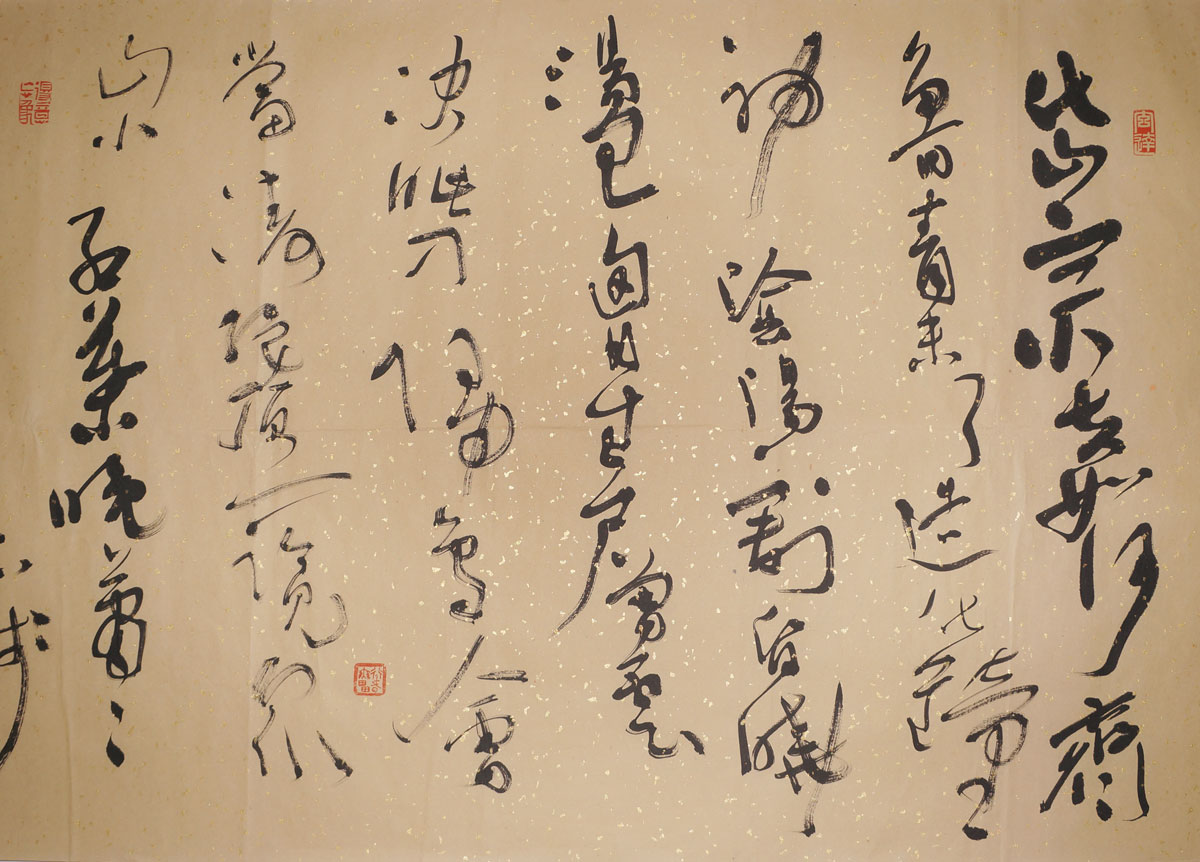 岱宗夫如何齊
魯青未了造化鍾
神陰陽割昏曉
盪胷生層雲
決眥入歸鳥會
當凌絕頂一覽眾
山小 紅葉晚蕭〻